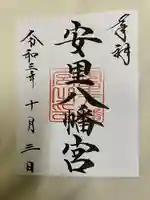 奉拝
安里八幡宮
令和三年
十月三日